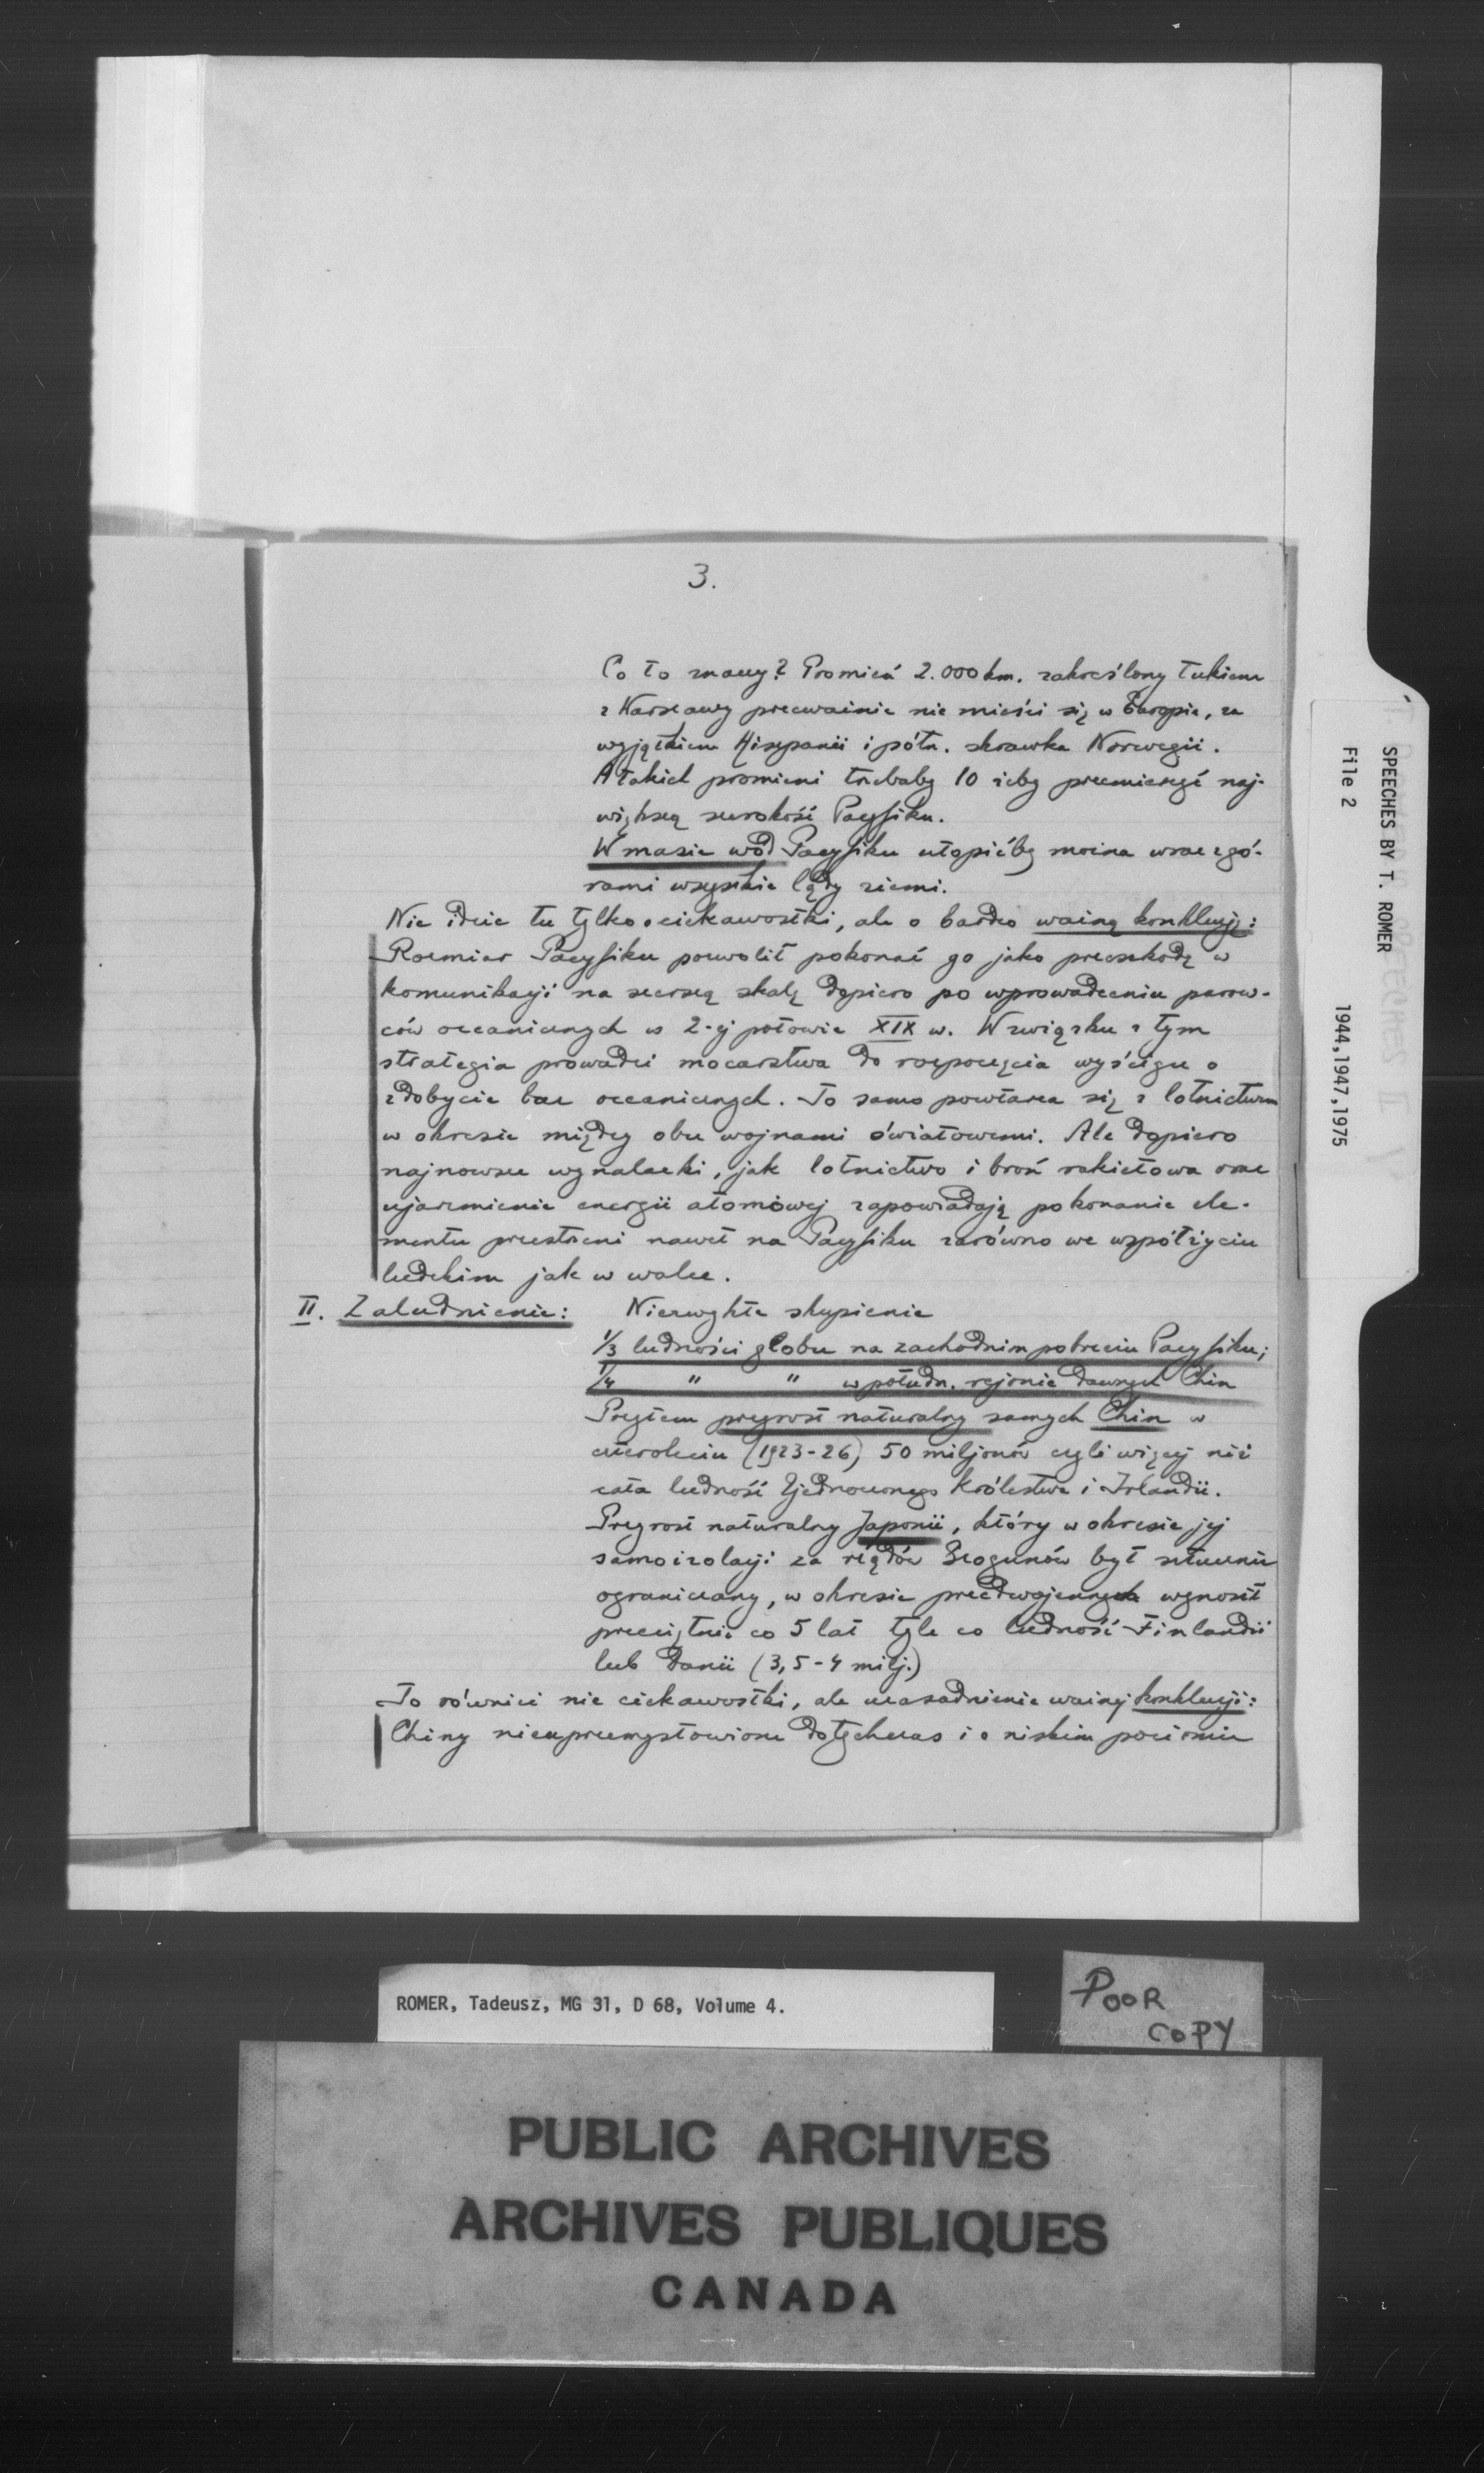 3.
Co to znaczy? Promień 2.000 km. zakreślony łukiem
z Warszawy przeważnie nie mieści się w Europie, za
wyjątkiem Hiszpanii i półn. skrawka Norwegii.
A takich promieni trzebaby 10 żeby przemierzyć naj-
większą szerokość Pacyfiku.
W masie wód Pacyfiku utopićby można wraz z gó-
rami wszystkie lądy ziemi.
Nie idzie tu tylko o ciekawostki, ale o bardzo ważną konkluzję:
Rozmiar Pacyfiku pozwolił pokonać go jako przeszkodę w
komunikacji na szerszą skalę dopiero po wprowadzeniu parow-
ców oceanicznych w 2-ej połowie XIX w. W związku z tym
strategia prowadzi mocarstwa do rozpoczęcia wyścigu o
zdobycie baz oceanicznych. To samo powtarza się z lotnictwem
w okresie między obu wojnami światowemi. Ale dopiero
najnowsze wynalazki, jak lotnictwo i broń rakietowa oraz
ujarzmienie energii atomowej zapowiadają pokonanie ele-
mentu przestrzeni nawet na Pacyfiku zarówno we współżyciu
ludzkim jak w walce.
II. Zaludnienie: Niezwykłe skupienie
1/3 ludności globu na zachodnim pobrzeżu Pacyfiku;
1/4 " " w połudn. rejonie dawnych Chin
Przytem przyrost naturalny samych Chin w
czteroleciu (1923-26) 50 miljonów czyli więcej niż
cała ludność Zjednoczonego Królestwa i Irlandii.
Przyrost naturalny Japonii, który w okresie jej
samoizolacji za rządów Szogunów był sztucznie
ograniczany, w okresie przedwojennych wynosił
przeciętnie co 5 lat tyle co ludność Finlandii
lub Danii (3,5-4 milj.)
To również nie ciekawostki, ale uzasadnienie ważnej konkluzji:
Chiny nieuprzemysłowione dotychczas i o niskim poziomie
SPEECHES BY T. ROMER
File 2
1944,1947,1975
ROMER, Tadeusz, MG 31, D 68, Volume 4.
POOR
COPY
PUBLIC ARCHIVES
ARCHIVES PUBLIQUES
CANADA